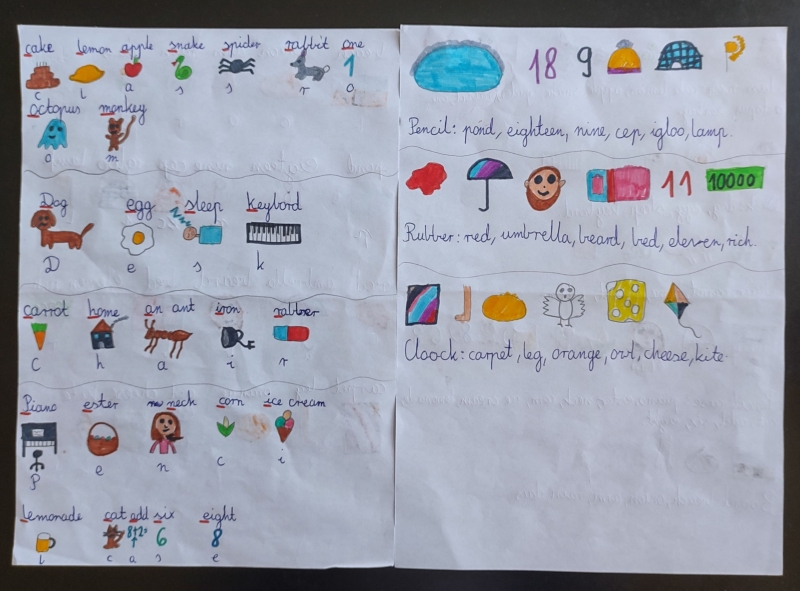 cake lemon apple snake spider rabbit one
1
c l a s s r o
Octopus monkey
o m
Dog egg sleep keybord
D e s k
carrot home an ant iron rabber
C h a i r
Piano ester neck corn ice cream
P e n c i
lemonade cat add six eight
8+2= 6 8
l c a s e
18 9
Pencil: pond, eighteen, nine, cep, igloo, lamp.
11 10000
Rubber: red, umbrella, beard, bed, eleven, rich.
Cloock: carpet, leg, orange, owl, cheese, kite.